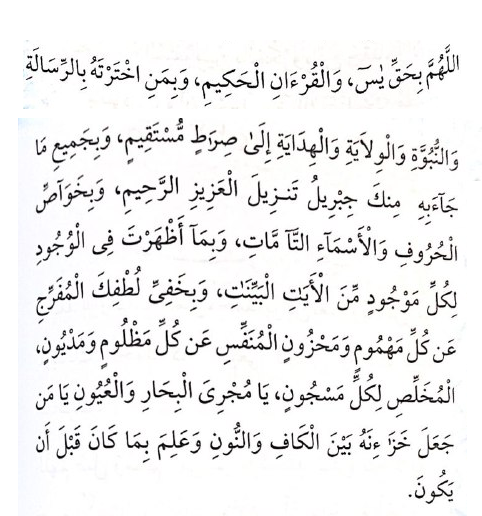 اللَّهُمَّ بِحَقِّ يٰسٓ، وَالْقُرْءَانِ الْحَكِيمِ، وَبِمَنِ اخْتَرْتَهُ بِالرِّسَالَةِ
وَالنُّبُوَّةِ وَالْوِلَايَةِ وَالْهِدَايَةِ إِلَىٰ صِرَاطٍ مُّسْتَقِيمٍ، وَبِجَمِيعِ مَا
جَآءَبِهِ مِنكَ جِبْرِيلُ تَنزِيلَ الْعَزِيزِ الرَّحِيمِ، وَبِخَوَآصِّ
الْحُرُوفِ وَالْأَسْمَآءِ التَّآ مَّاتِ، وَبِمَآ أَظْهَرْتَ فِى الْوُجُودِ
لِكُلِّ مَوْجُودٍ مِّنَ الْأَيَاتِ الْبَيِّنَاتِ، وَبِخَفِىِّ لُطْفِكَ الْمُفَرِّجِ
عَن كُلِّ مَهْمُومٍ وَمَحْزُونٍ الْمُنَفِّسِ عَن كُلِّ مَظْلُومٍ وَمَدْيُونٍ،
الْمُخَلِّصِ لِكُلِّ مَسْجُونٍ، يَا مُجْرِىَ الْبِحَارِ وَالْعُيُونِ يَا مَن
جَعَلَ خَزَآ ءِنَهُ بَيْنَ الْكَافِ وَالنُّونِ وَعَلِمَ بِمَا كَانَ قَبْلَ أَن
يَكُونَ.